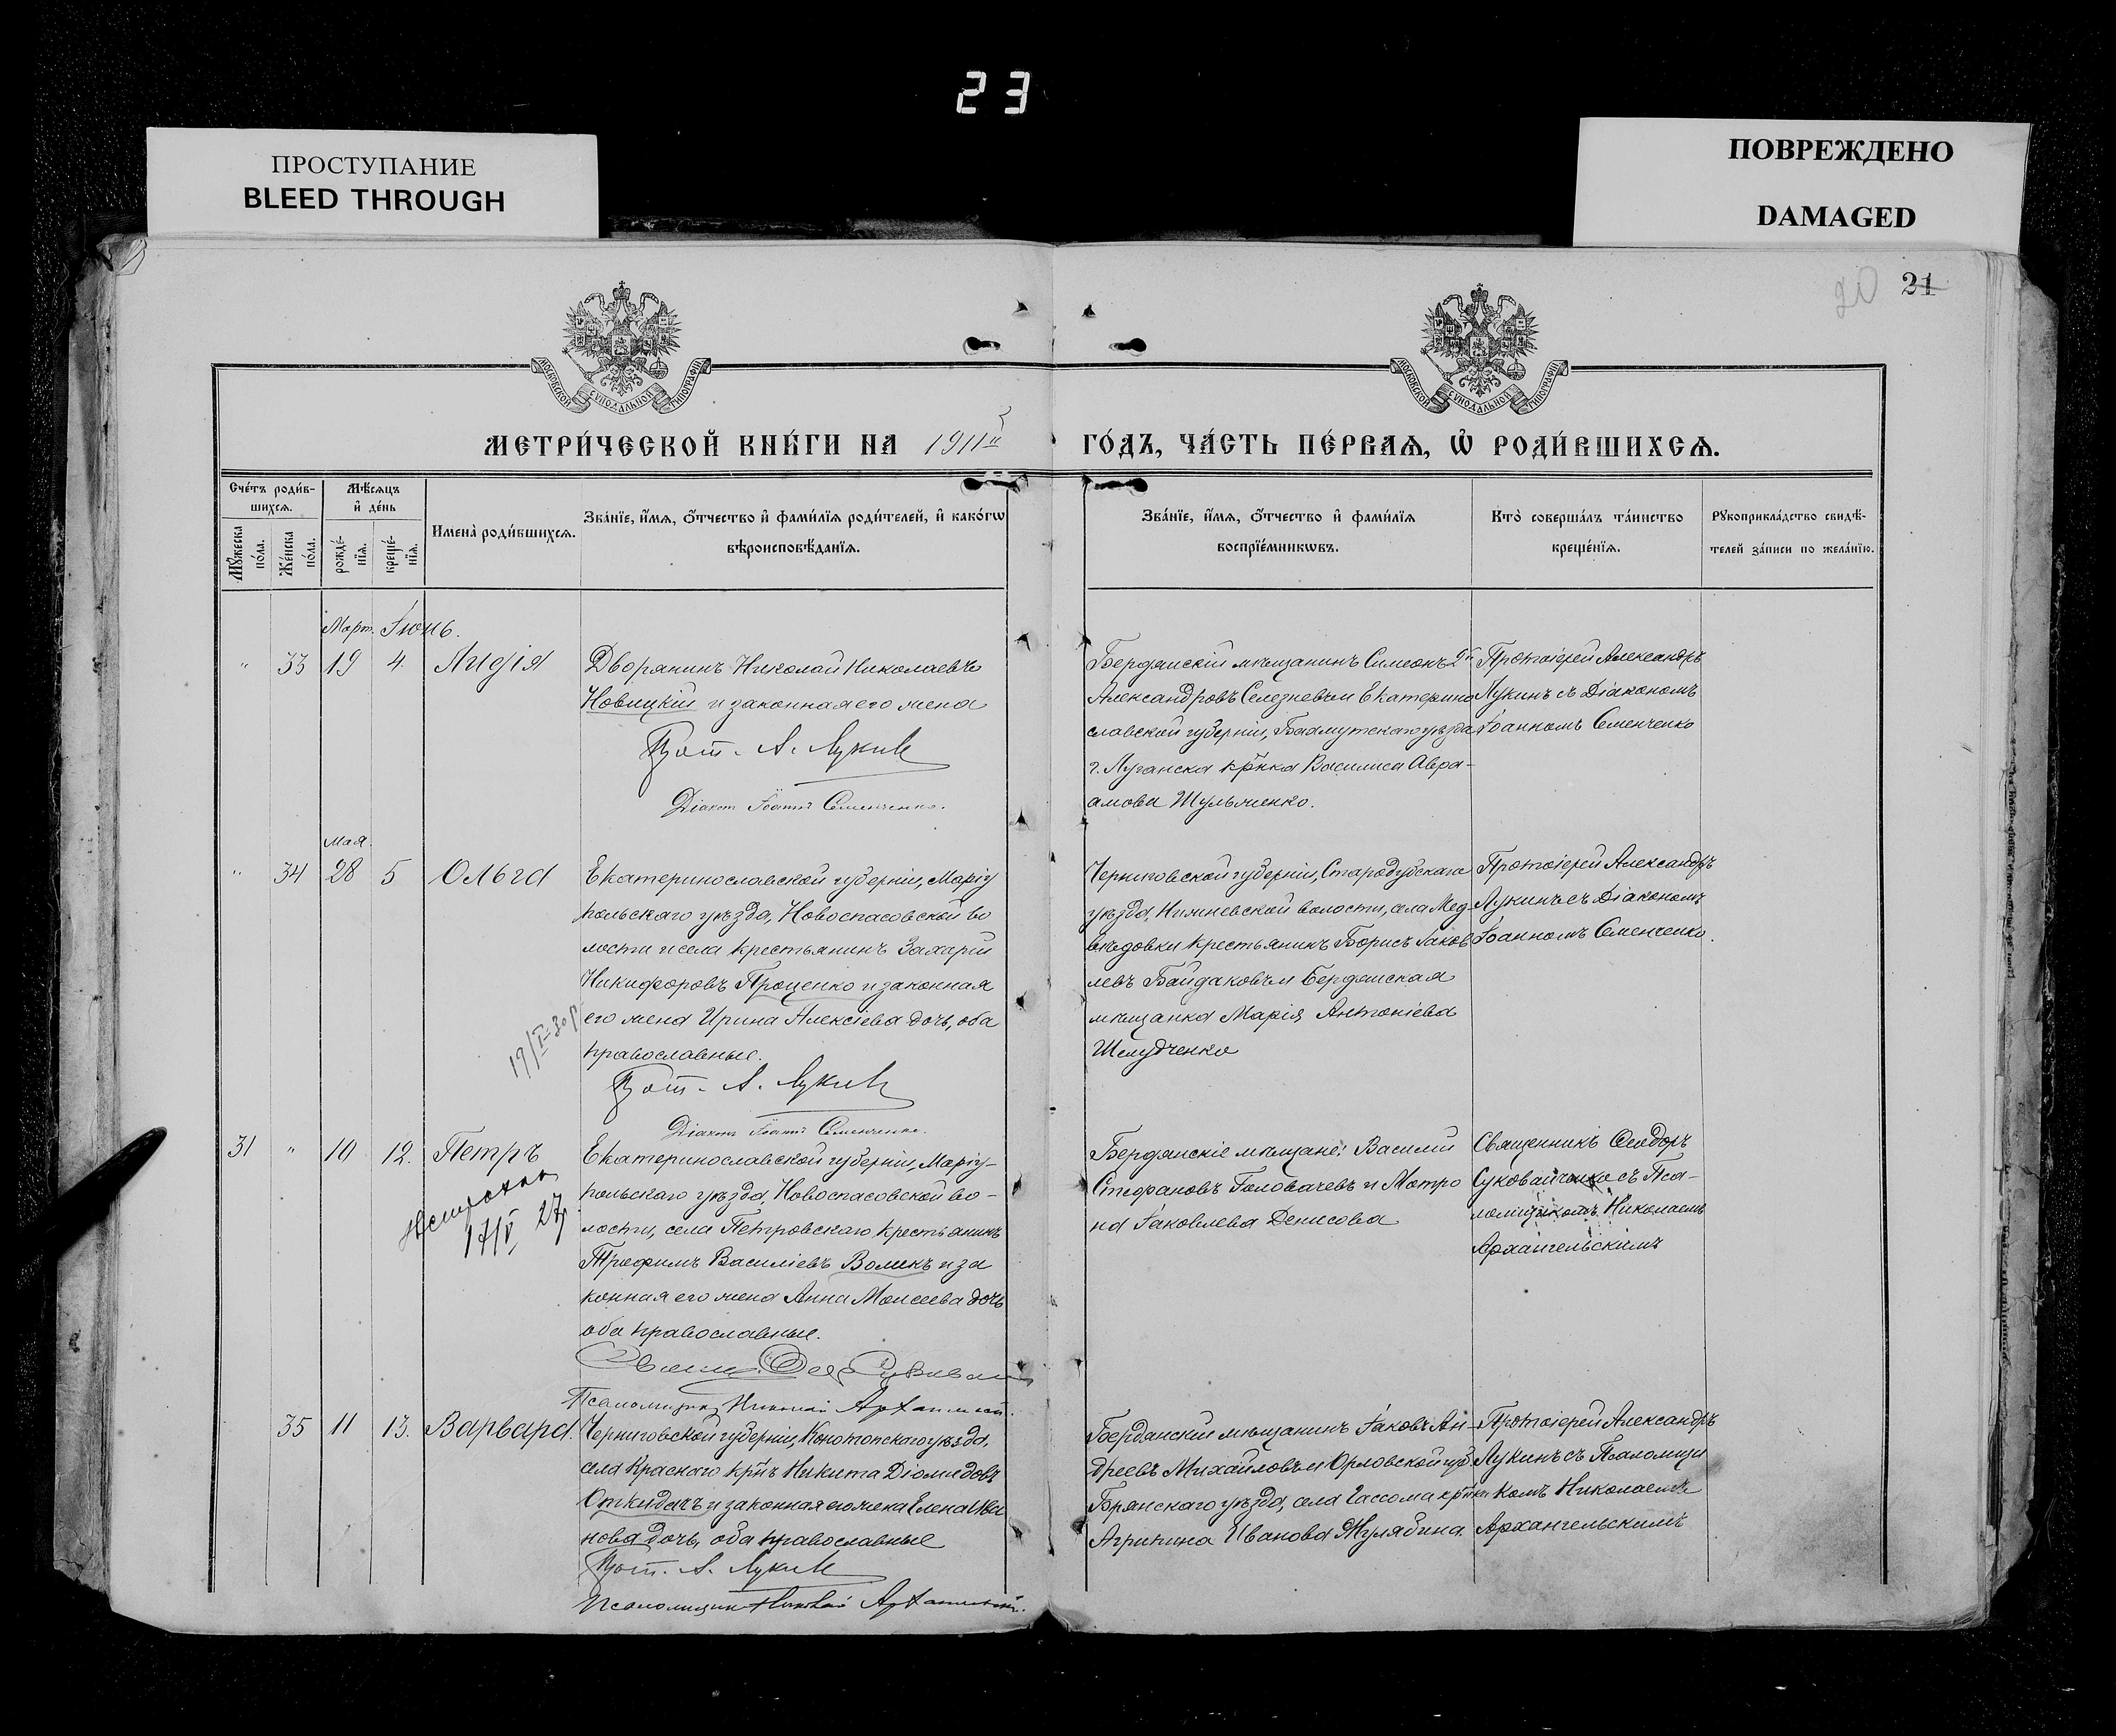 23
ПРОСТУПАНИЕ
BLEED THROUGH
ПОВРЕЖДЕНО
DAMAGED
20 21
МОСКОВСКОЙ СУНОДАЛЬНОЙ ТИПОГРАФІИ
МОСКОВСКОЙ СУНОДАЛЬНОЙ ТИПОГРАФІИ
МЕТРИ́ЧЕСКОЙ КНИ́ГИ НА 1911й
ГО́ДЪ, ЧА́СТЬ ПЕ́РВАѦ, Ѡ РОДИ́ВШИХСѦ.
Сче́тъ роди́в-
шихсѧ.
Мꙋ́жеска по́ла.
Же́нска по́ла.
Мѣ́сѧцъ
и҆ де́нь
рожде́-нїѧ.
креще́-нїѧ.
Имена̀ роди́вшихсѧ.
Зва́нїе, и҆́мѧ, ѻ҆́тчество и҆ фами́лїѧ роди́телей, и҆ како́гѡ
вѣроисповѣ́данїѧ.
Зва́нїе, и҆́мѧ, ѻ҆́тчество и҆ фами́лїѧ
воспрїе́мникѡвъ.
Кто̀ соверша́лъ та́инство
креще́нїѧ.
Рꙋкоприкла́дство свидѣ́-
телей за́писи по жела́нїю.
Март. Іюнь.
" 33 19 4. Лидія
Дворянинъ Николай Николаевъ
Новицкій и законная его жена
Прот. А. Лукин
Діакон Іоаннъ Семенченко.
Бердянскій мѣщанинъ Симеонъ
Александровъ Селезневъ и Екатерино
славской губерніи, Бахмутскаго уѣзда
г. Луганска кр-нка Василиса Авра-
амова Шульженко.
Протоіерей Александръ
Лукинъ съ Діакономъ
Іоанномъ Семенченко
мая.
" 34 28 5 Ольга
Екатеринославской губерніи, Маріу
польскаго уѣзда, Новоспасовской во
лости и села крестьянинъ Захарій
Никифоровъ Проценко и законная
его жена Ирина Алексіева дочь, оба
православные.
19/I-30р
Прот. А. Лукин
Діакон Іоаннъ Семенченко.
Черниговской губерніи, Стародубскаго
уѣзда, волости, села Мед-
вѣдовки крестьянинъ Борисъ Іаков
левъ Байдаковъ и Бердянская
мѣщанка Марія Антоніева
Шелудченко
Протоіерей Александръ
Лукинъ съ Діакономъ
Іоанномъ Семенченко.
31 " 10 12. Петръ
17/V 27р
Екатеринославской губерніи, Маріу-
польскаго уѣзда, Новоспасовской во-
лости, села Петровскаго крестьянинъ
Трофимъ Василіевъ Воликъ и за
конная его жена Анна Моисеева дочь
оба православные.
Свящ. Ѳео
Псаломщик Николай Архангельскій.
Бердянскіе мѣщане: Василій
Стефановъ Головачевъ и Мотро
на Іаковлева Денисова
Священникъ Ѳеодоръ
съ Пса-
ломщикомъ Николаемъ
Архангельскимъ
35 11 13. Варвара.
Черниговской губерніи, Конотопскаго уѣзда,
села Краснаго кр-нъ Никита Діомидовъ
Откидачъ и законная его жена Елена
нова дочь, оба православные
Прот. А. Лукин
Псаломщик Николай Архангельскій.
Бердянскій мѣщанинъ Іаковъ Ан-
дреевъ Михайловъ и Орловской губ.
Брянскаго уѣзда, села кр-нка
Агрипина Иванова Жулябина.
Протоіерей Александръ
Лукинъ съ Псаломщи
комъ Николаемъ
Архангельскимъ